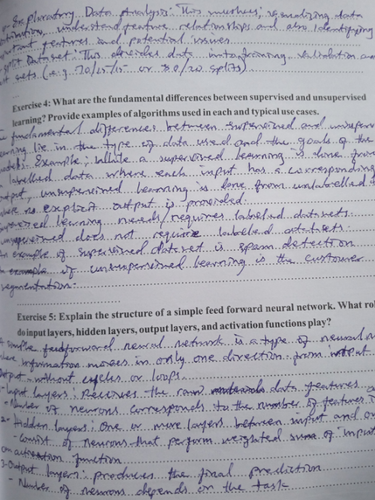 Exploratory Data Analysis: This involves, visualizing data
distribution, understand feature relationships and also identifying
important features and potential issues
Split Dataset: This divides data into training, validation and
test sets (e.g. 70/15/15 or 80/20 splits).
Exercise 4: What are the fundamental differences between supervised and unsupervised
learning? Provide examples of algorithms used in each and typical use cases.
fundamental differences between supervised and unsuperv
learning lie in the type of data used and the goals of the
Example; While a supervised learning is done from
labelled data where each input has a corresponding
output, unsupervised learning is done from unlabelled
where no explicit output is provided.
supervised learning needs/requires labeled datasets
unsupervised does not require labeled datasets
example of supervised dataset is spam detection
example of unsupervised learning is the customer
segmentation.
Exercise 5: Explain the structure of a simple feed forward neural network. What ro
do input layers, hidden layers, output layers, and activation functions play?
simple feedforward neural network is a type of neural
where information moves in only one direction from input
output without cycles or loops.
Input layers: Receives the raw data features
- Number of neurons corresponds to the number of features
2- Hidden layers: One or more layers between input and
- Consist of neurons that perform weighted sum of input
an activation function
3- Output layers: produces the final prediction
- Number of neurons depends on the task